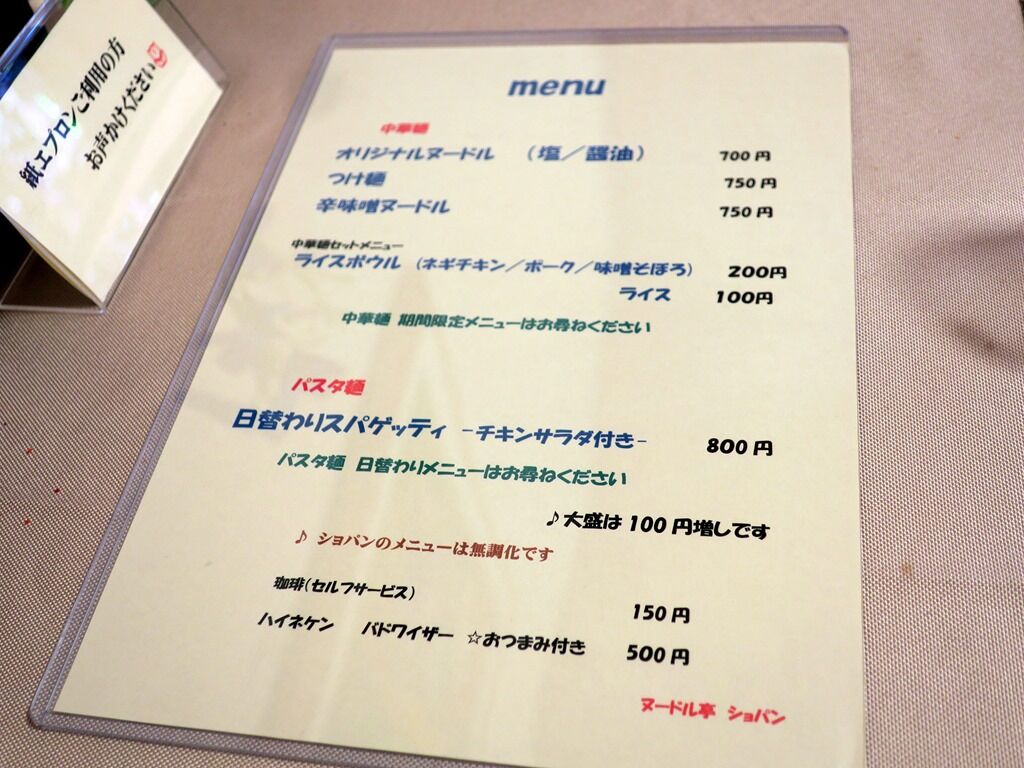 紙エプロンご利用の方
お声かけください
menu
中華麺
オリジナルヌードル （塩／醤油） 700円
つけ麺 750円
辛味噌ヌードル 750円
中華麺セットメニュー
ライスボウル （ネギチキン／ポーク／味噌そぼろ） 200円
ライス 100円
中華麺 期間限定メニューはお尋ねください
パスタ麺
日替わりスパゲッティ －チキンサラダ付き－ 800円
パスタ麺 日替わりメニューはお尋ねください
♪大盛は100円増しです
♪ ショパンのメニューは無調化です
珈琲（セルフサービス） 150円
ハイネケン バドワイザー ☆おつまみ付き 500円
ヌードル亭 ショパン